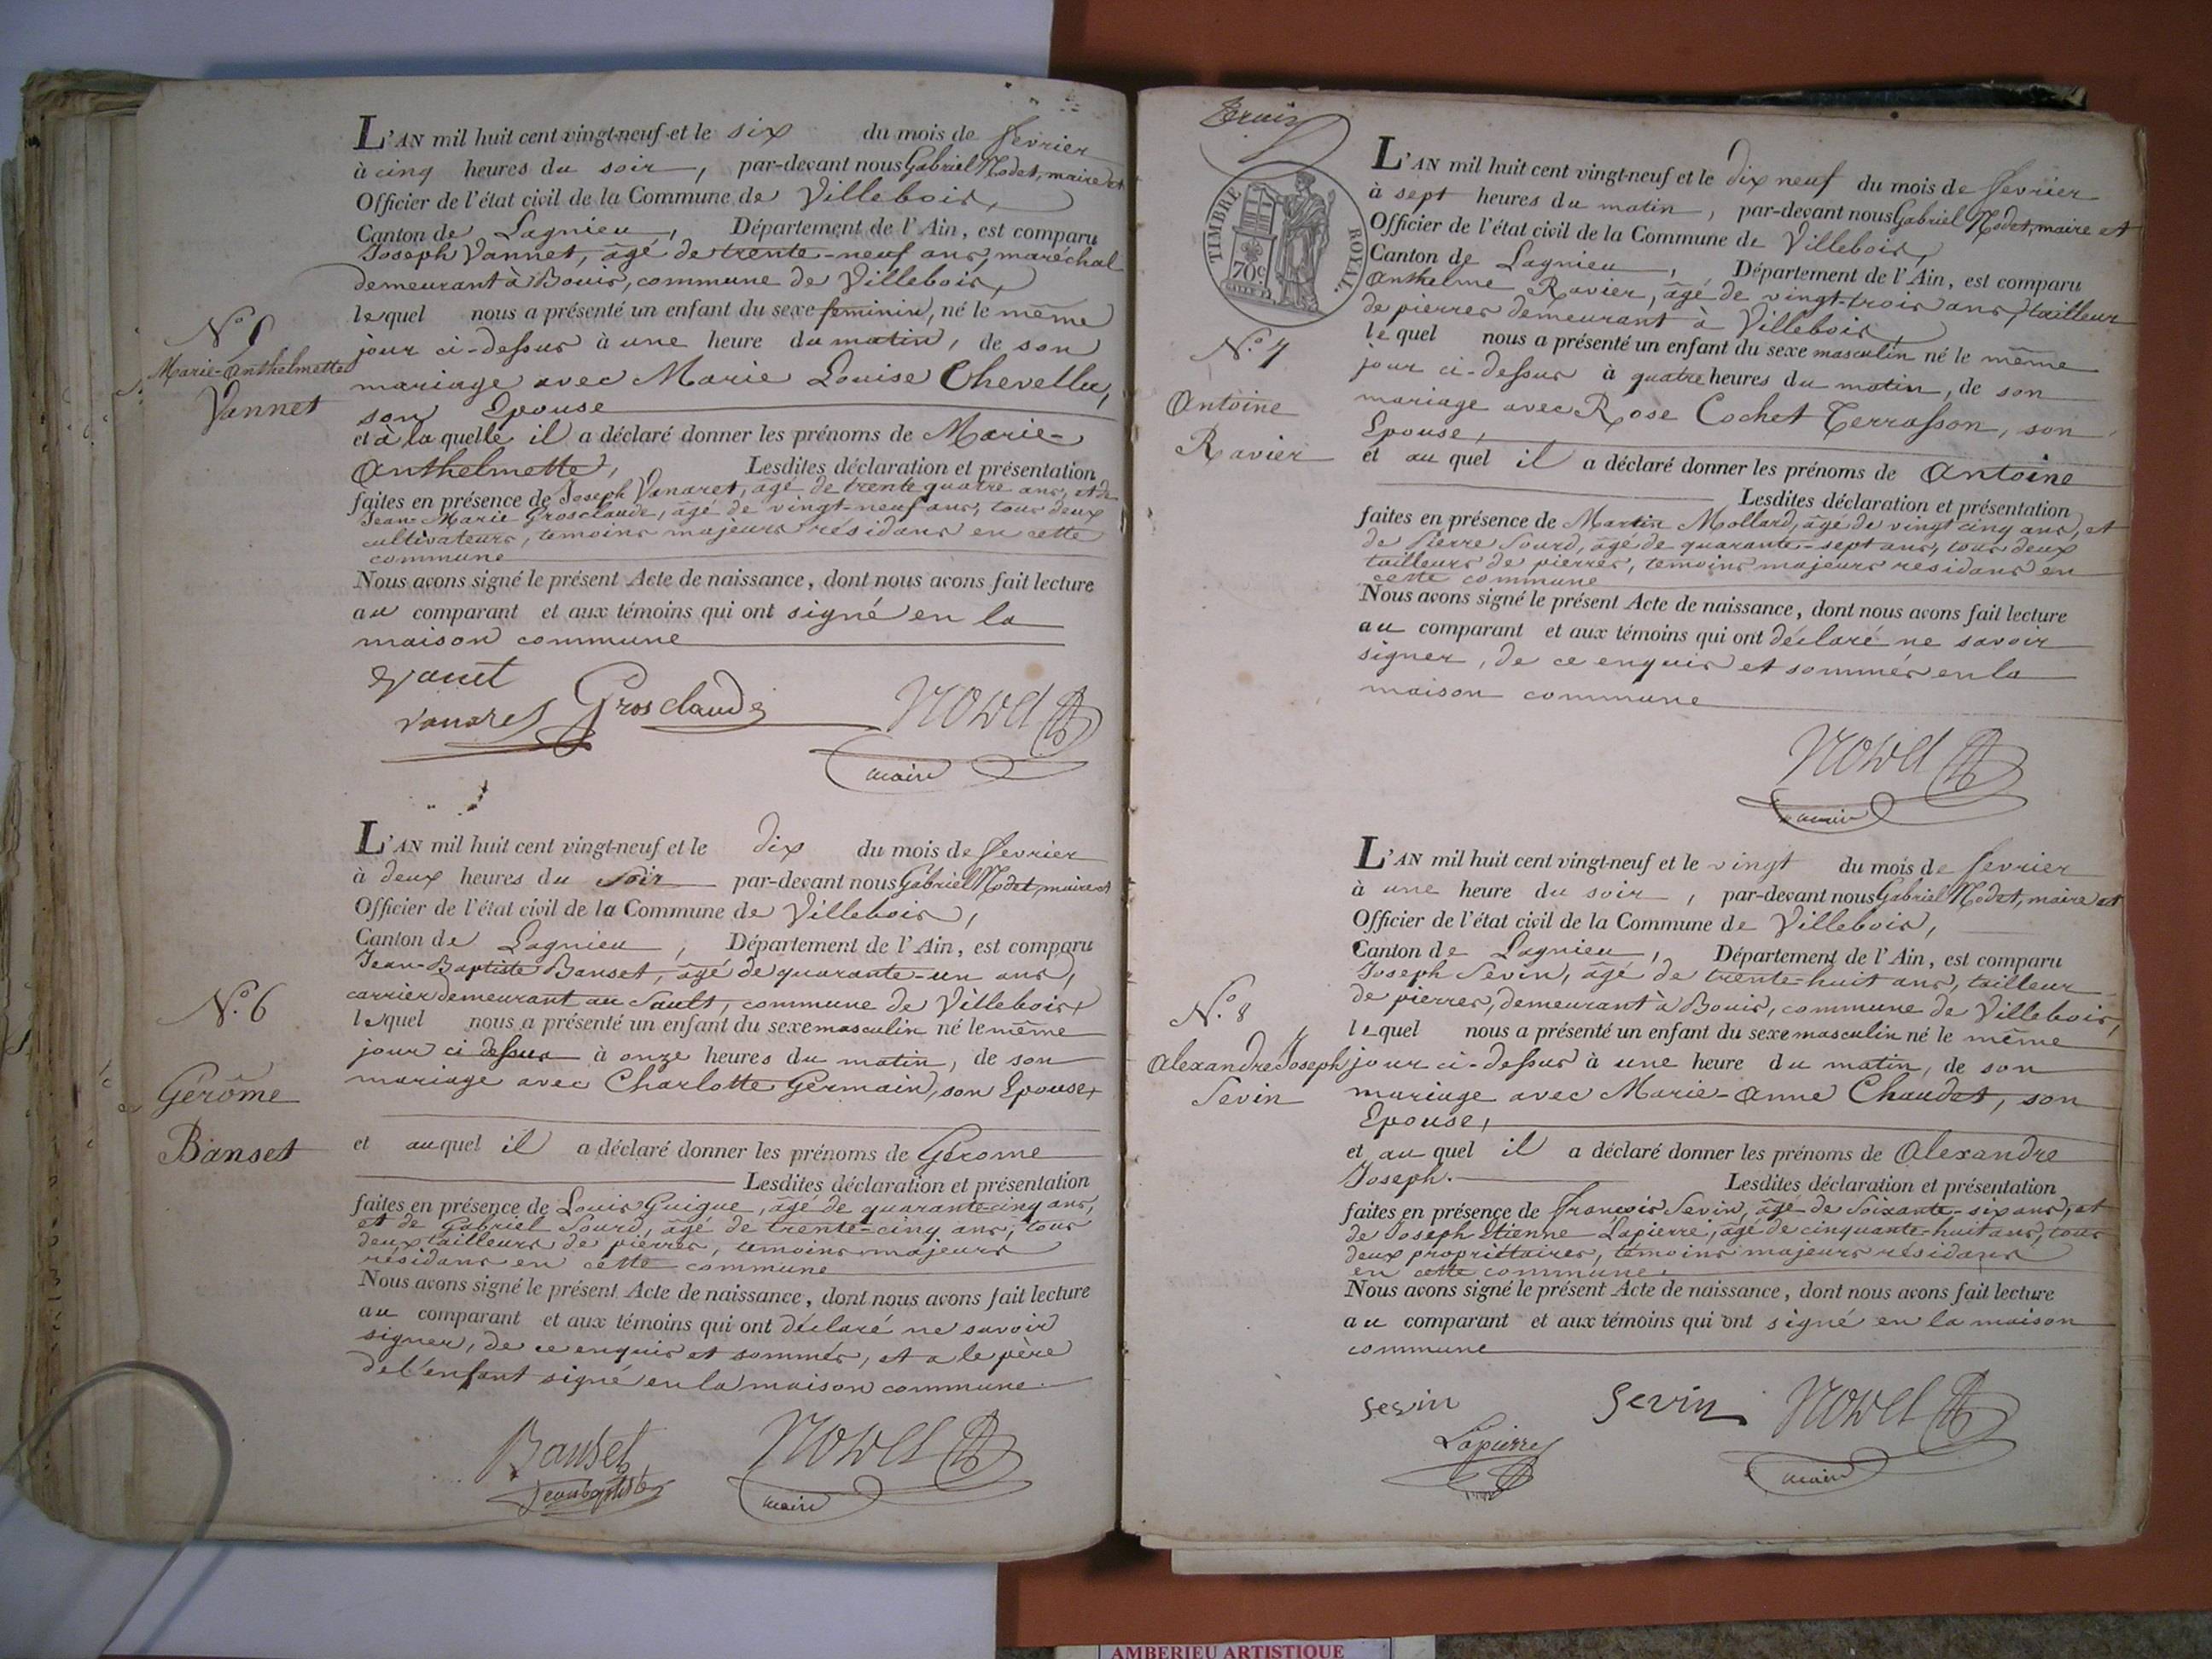 L'AN mil huit cent vingt-neuf et le six du mois de fevrier
à cinq heures du soir, par-devant nous Gabriel Nodet, maire et
Officier de l'état civil de la Commune de Villebois,
Canton de Lagnieu, Département de l'Ain, est comparu
Joseph Vannet, âgé de trente-neuf ans, maréchal
demeurant à Bouis, commune de Villebois,
lequel nous a présenté un enfant du sexe feminin, né le même
jour ci-dessus à une heure du matin, de son
mariage avec Marie Louise Chevellu,
son Epouse
et à la quelle il a déclaré donner les prénoms de Marie-
Anthelmette, Lesdites déclaration et présentation
faites en présence de Joseph Vanaret, âgé de trente quatre ans, et de
Jean-Marie Grosclaude, âgé de vingt-neuf ans, tous deux
cultivateurs, temoins majeurs résidans en cette
commune
Nous avons signé le présent Acte de naissance, dont nous avons fait lecture
au comparant et aux témoins qui ont signé en la
maison commune
Grosclaude
maire
N.º 5
Marie-Anthelmette
Vannet
L'AN mil huit cent vingt-neuf et le dix du mois de fevrier
à deux heures du soir par-devant nous Gabriel Nodet, maire et
Officier de l'état civil de la Commune de Villebois,
Canton de Lagnieu, Département de l'Ain, est comparu
Jean-Baptiste Banset, âgé de quarante-un ans,
carrier demeurant au Sault, commune de Villebois,
lequel nous a présenté un enfant du sexe masculin né le même
jour ci dessus à onze heures du matin, de son
mariage avec Charlotte Germain, son Epouse,
et auquel il a déclaré donner les prénoms de Gérome
Lesdites déclaration et présentation
faites en présence de Louis Guigue, âgé de quarante-cinq ans,
et de Gabriel Sourd, âgé de trente-cinq ans, tous
deux tailleurs de pierres, temoins majeurs
résidans en cette commune
Nous avons signé le présent Acte de naissance, dont nous avons fait lecture
au comparant et aux témoins qui ont déclaré ne savoir
signer, de ce enquis et sommés, et a le père
de l'enfant signé en la maison commune.
Banset
Jean baptiste
maire
N.º 6
Gérôme
Banset
TIMBRE ROYAL.
70c
L'AN mil huit cent vingt-neuf et le dix neuf du mois de fevrier
à sept heures du matin, par-devant nous Gabriel Nodet, maire et
Officier de l'état civil de la Commune de Villebois,
Canton de Lagnieu, Département de l'Ain, est comparu
Anthelme Ravier, âgé de vingt-trois ans, tailleur
de pierres demeurant à Villebois,
lequel nous a présenté un enfant du sexe masculin né le même
jour ci-dessus à quatre heures du matin, de son
mariage avec Rose Cochet Terrasson, son
Epouse,
et au quel il a déclaré donner les prénoms de Antoine
Lesdites déclaration et présentation
faites en présence de Martin Mollard, âgé de vingt cinq ans, et
de Pierre Sourd, âgé de quarante-sept ans, tous deux
tailleurs de pierres, temoins majeurs résidans en
cette commune
Nous avons signé le présent Acte de naissance, dont nous avons fait lecture
au comparant et aux témoins qui ont déclaré ne savoir
signer, de ce enquis et sommés en la
maison commune
maire
N.º 7
Antoine
Ravier
L'AN mil huit cent vingt-neuf et le vingt du mois de fevrier
à une heure du soir, par-devant nous Gabriel Nodet, maire et
Officier de l'état civil de la Commune de Villebois,
Canton de Lagnieu, Département de l'Ain, est comparu
Joseph Sevin, âgé de trente-huit ans, tailleur
de pierres, demeurant à Bouis, commune de Villebois,
lequel nous a présenté un enfant du sexe masculin né le même
jour ci-dessus à une heure du matin, de son
mariage avec Marie-Anne Chaudet, son
Epouse,
et au quel il a déclaré donner les prénoms de Alexandre
Joseph. Lesdites déclaration et présentation
faites en présence de françois Sevin, âgé de soixante-six ans, et
de Joseph Etienne Lapierre, âgé de cinquante-huit ans, tous
deux propriétaires, témoins majeurs résidans
en cette commune.
Nous avons signé le présent Acte de naissance, dont nous avons fait lecture
au comparant et aux témoins qui ont signé en la maison
commune
sevin Sevin
Lapierre
maire
N.º 8
Alexandre Joseph
Sevin
AMBERIEU ARTISTIQUE